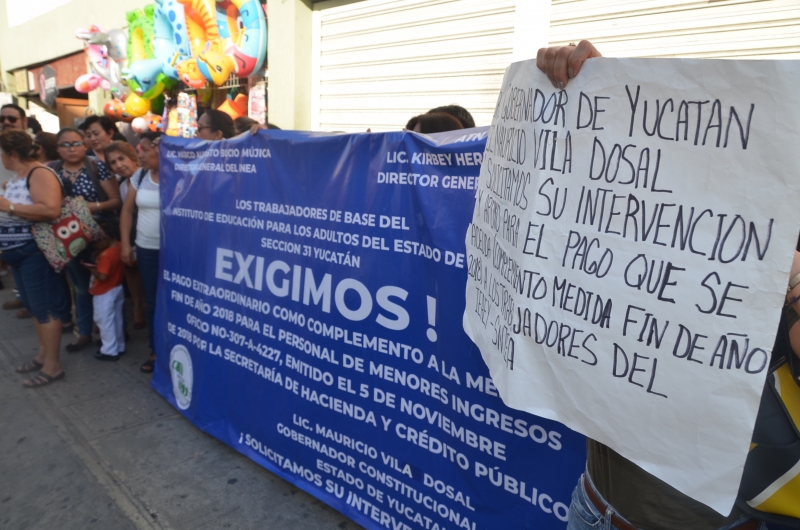 LIC. MARCO ALBERTO BUCIO MÚJICA
DIRECTOR GENERAL DEL INEA
LIC. KIRBEY HERR
DIRECTOR GENER
LOS TRABAJADORES DE BASE DEL
INSTITUTO DE EDUCACIÓN PARA LOS ADULTOS DEL ESTADO DE
SECCION 31 YUCATÁN
EXIGIMOS !
EL PAGO EXTRAORDINARIO COMO COMPLEMENTO A LA ME
FIN DE AÑO 2018 PARA EL PERSONAL DE MENORES INGRESOS
OFICIO NO-307-A-4227, EMITIDO EL 5 DE NOVIEMBRE
DE 2018 POR LA SECRETARÍA DE HACIENDA Y CRÉDITO PÚBLICO
LIC. MAURICIO VILA DOSAL
GOBERNADOR CONSTITUCIONAL
ESTADO DE YUCATA
¡ SOLICITAMOS SU INTERV
GOBERNADOR DE YUCATAN
MAURICIO VILA DOSAL
SOLICITAMOS SU INTERVENCION
Y APOYO PARA EL PAGO QUE SE
ADEUDA COMPLEMENTO MEDIDA FIN DE AÑO
2018 A LOS TRABAJADORES DEL
IEAEY